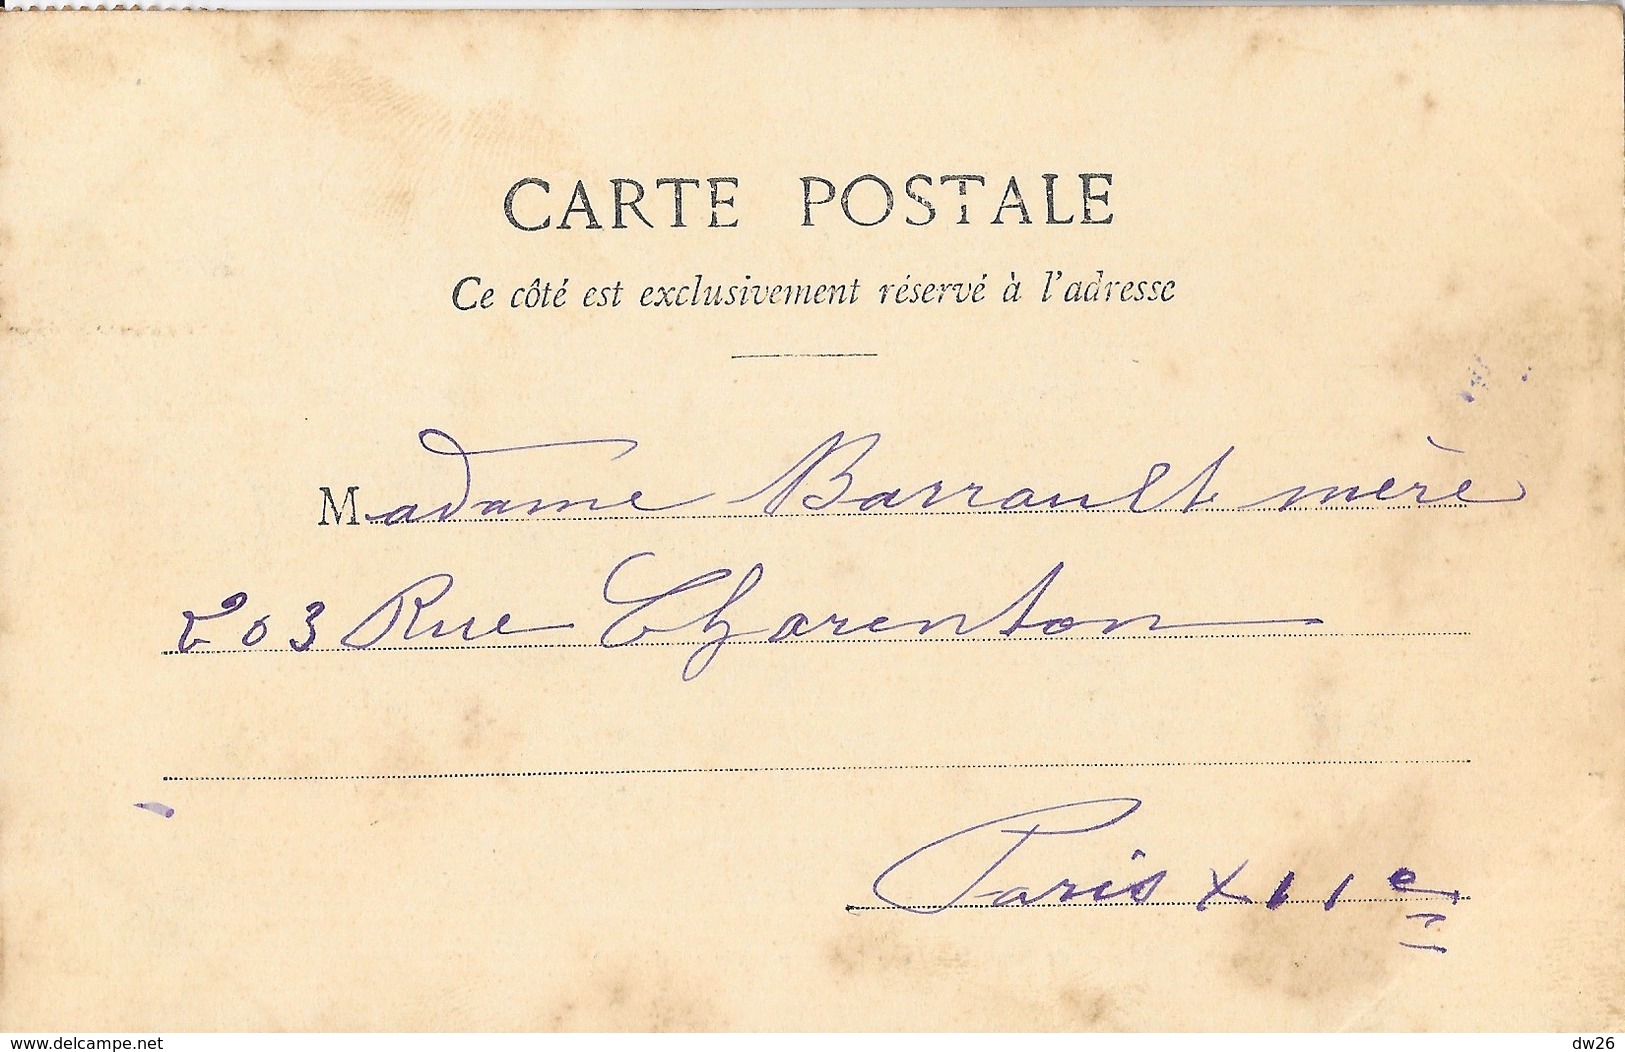 CARTE POSTALE
Ce côté est exclusivement réservé à l'adresse
Madame Barrault mère
203 Rue Charenton
Paris XIIe
www.delcampe.net
dw26